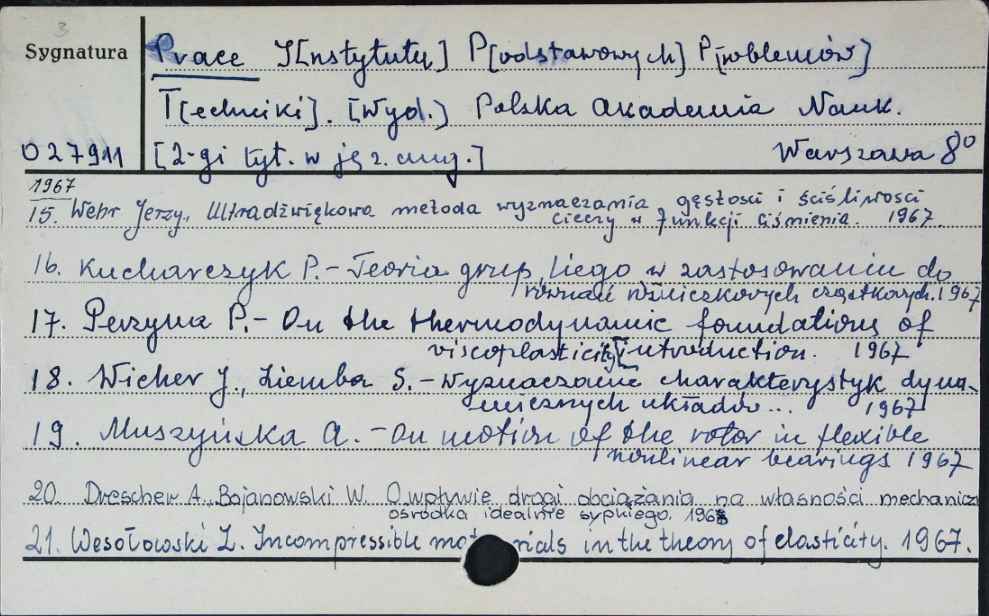 3
Sygnatura
Prace I[nstytutu] P[odstawowych] P[roblemów]
T[echniki]. [Wyd.] Polska Akademia Nauk.
027911 [2-gi tyt. w jęz. ang.] Warszawa 8°
1967
15. Wehr Jerzy., Ultradźwiękowa metoda wyznaczania gęstości i ściśliwości
cieczy w funkcji ciśnienia. 1967.
16. Kucharczyk P. - Teoria grup Liego w zastosowaniu do
równań różniczkowych cząstkowych. 1967
17. Perzyna P. - On the thermodynamic foundations of
viscoplasticity [introduction. 1967
18. Wicher J., Ziemba S. - Wyznaczanie charakterystyk dyna-
micznych układów... 1967
19. Muszyńska A. - On motion of the rotor in flexible
nonlinear bearings 1967
20. Drescher A., Bojanowski W. O wpływie drogi obciążania na własności mechanicz
ośrodka idealnie sypkiego. 1968
21. Wesołowski Z. Incompressible materials in the theory of elasticity. 1967.